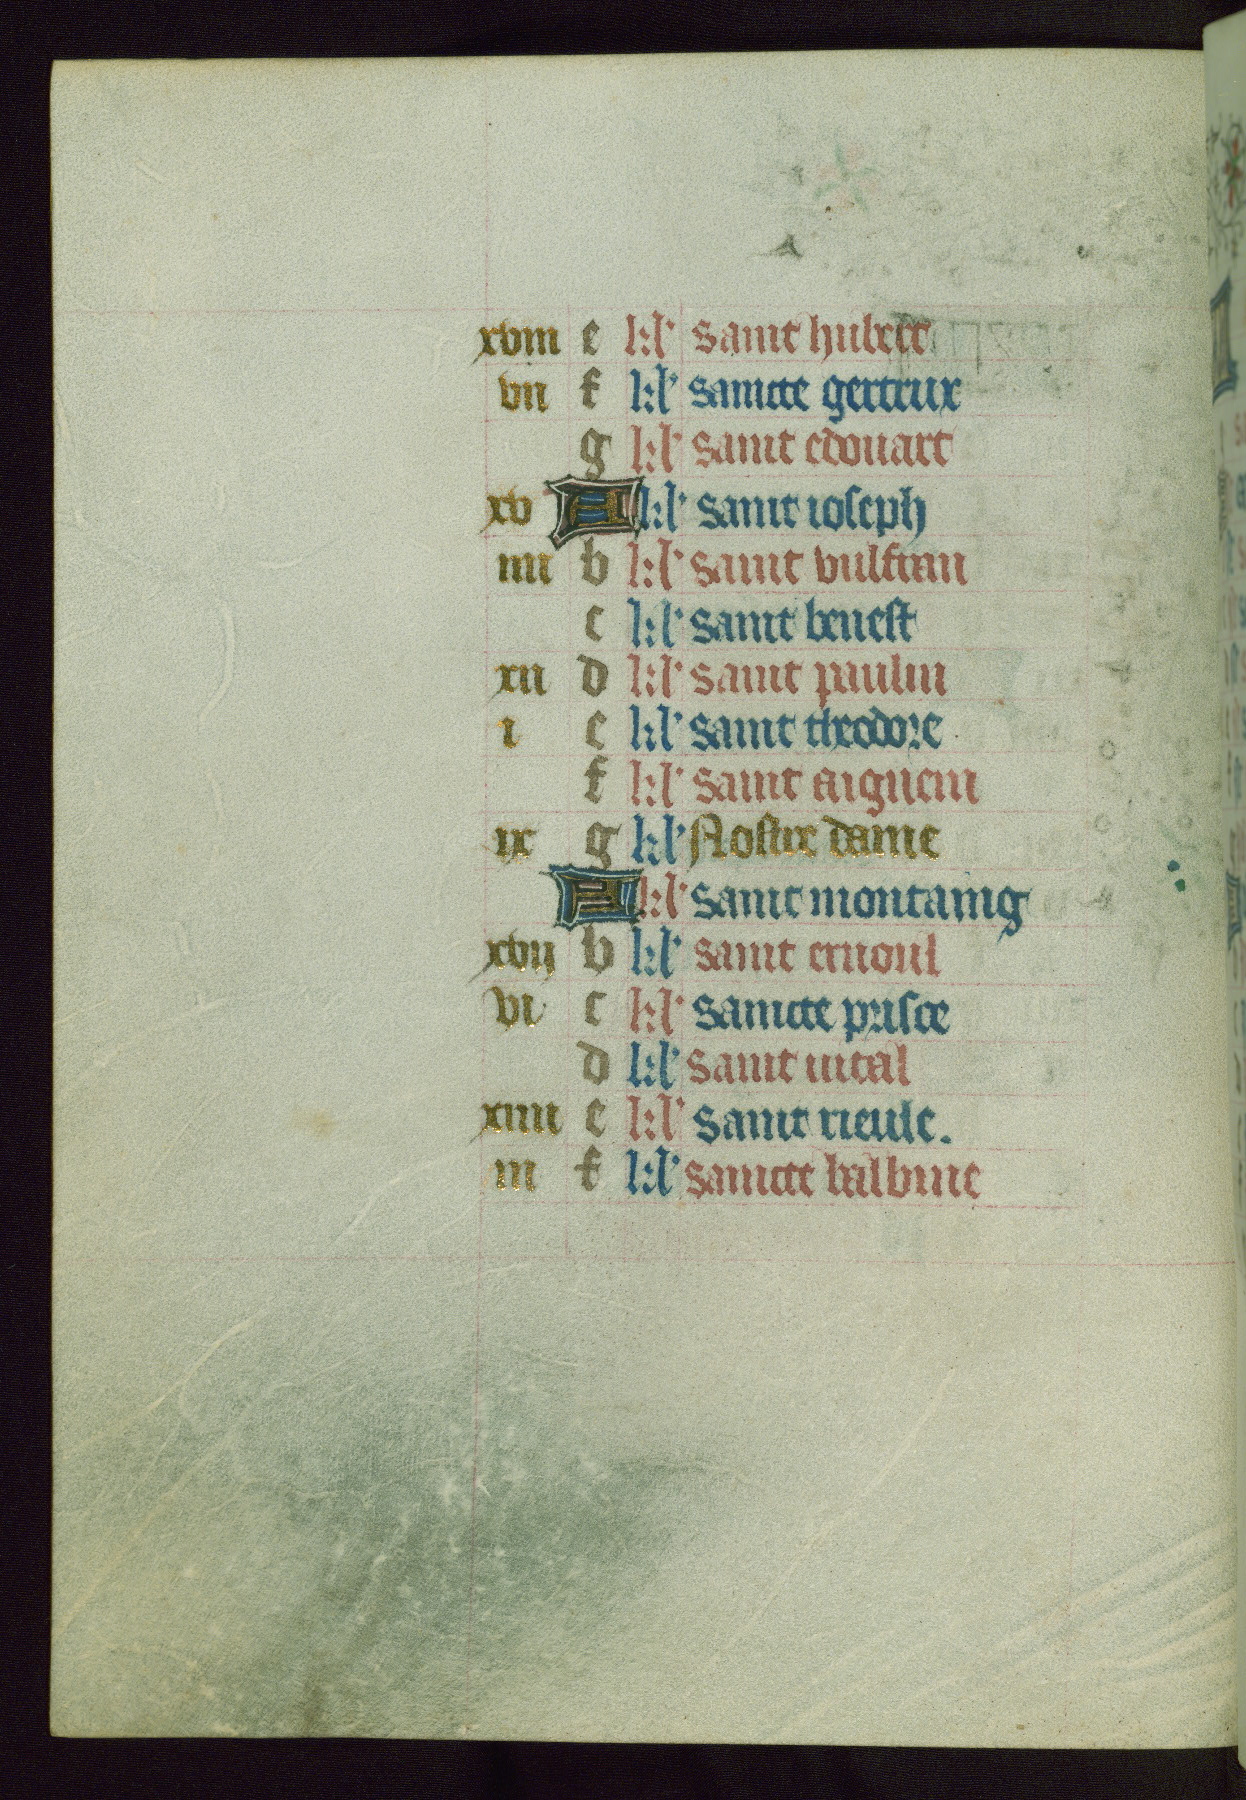 xviii e kl' saint hubert
vii f kl' saincte gertrux
g kl' saint edouart
xv A kl' saint ioseph
iiii b kl' saint vulfran
c kl' saint benest
xii d kl' saint paulin
i e kl' saint theodore
f kl' saint aignein
ix g kl' Nostre dame
A kl' saint montaing
xvii b kl' saint ernoul
vi c kl' saincte prisce
d kl' saint vital
xiiii e kl' saint rieule.
iii f kl' saincte balbine